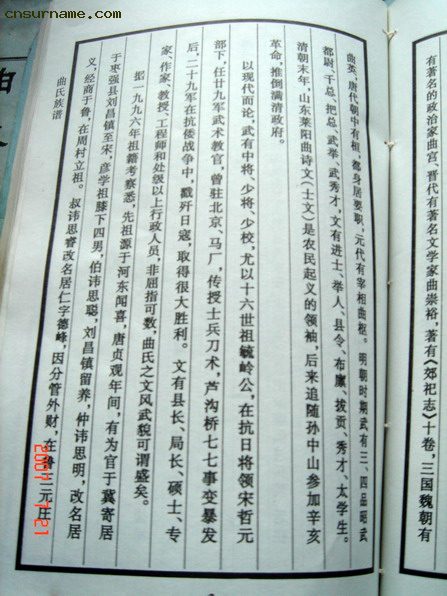 cnsurname.com
有著名的政治家曲宫，晋代有著名文学家曲崇裕，著有《郊祀志》十卷，三国魏朝有
曲英，唐代朝中有桓、都身居要职，元代有宰相曲枢。明朝时期武有三、四品昭武
都尉、千总、把总、武举、武秀才，文有进士、举人、县令、布廪、拔贡、秀才、太学生。
清朝末年，山东莱阳曲诗文（士文）是农民起义的领袖，后来追随孙中山参加辛亥
革命，推倒满清政府。
以现代而论，武有中将、少将、少校，尤以十六世祖毓岭公，在抗日将领宋哲元
部下，任廿九军武术教官，曾驻北京、马厂，传授士兵刀术，芦沟桥七七事变暴发
后，二十九军在抗倭战争中，戮歼日寇，取得很大胜利。文有县长、局长、硕士、专
家、作家、教授、工程师和处级以上行政人员，非屈指可数，曲氏之文风武貌可谓盛矣。
据一九九六年祖籍考察悉，先祖源于河东闻喜，唐贞观年间，有为官于冀寄居
于枣强县刘昌镇至宋，彦学祖膝下四男，伯讳思聪，刘昌镇留养，仲讳思明，改名居
义，经商于鲁，在周村立祖。叔讳思睿改名居仁字德峰，因分管外财，在鲁三元庄
曲氏族谱
曲
2007 7 21